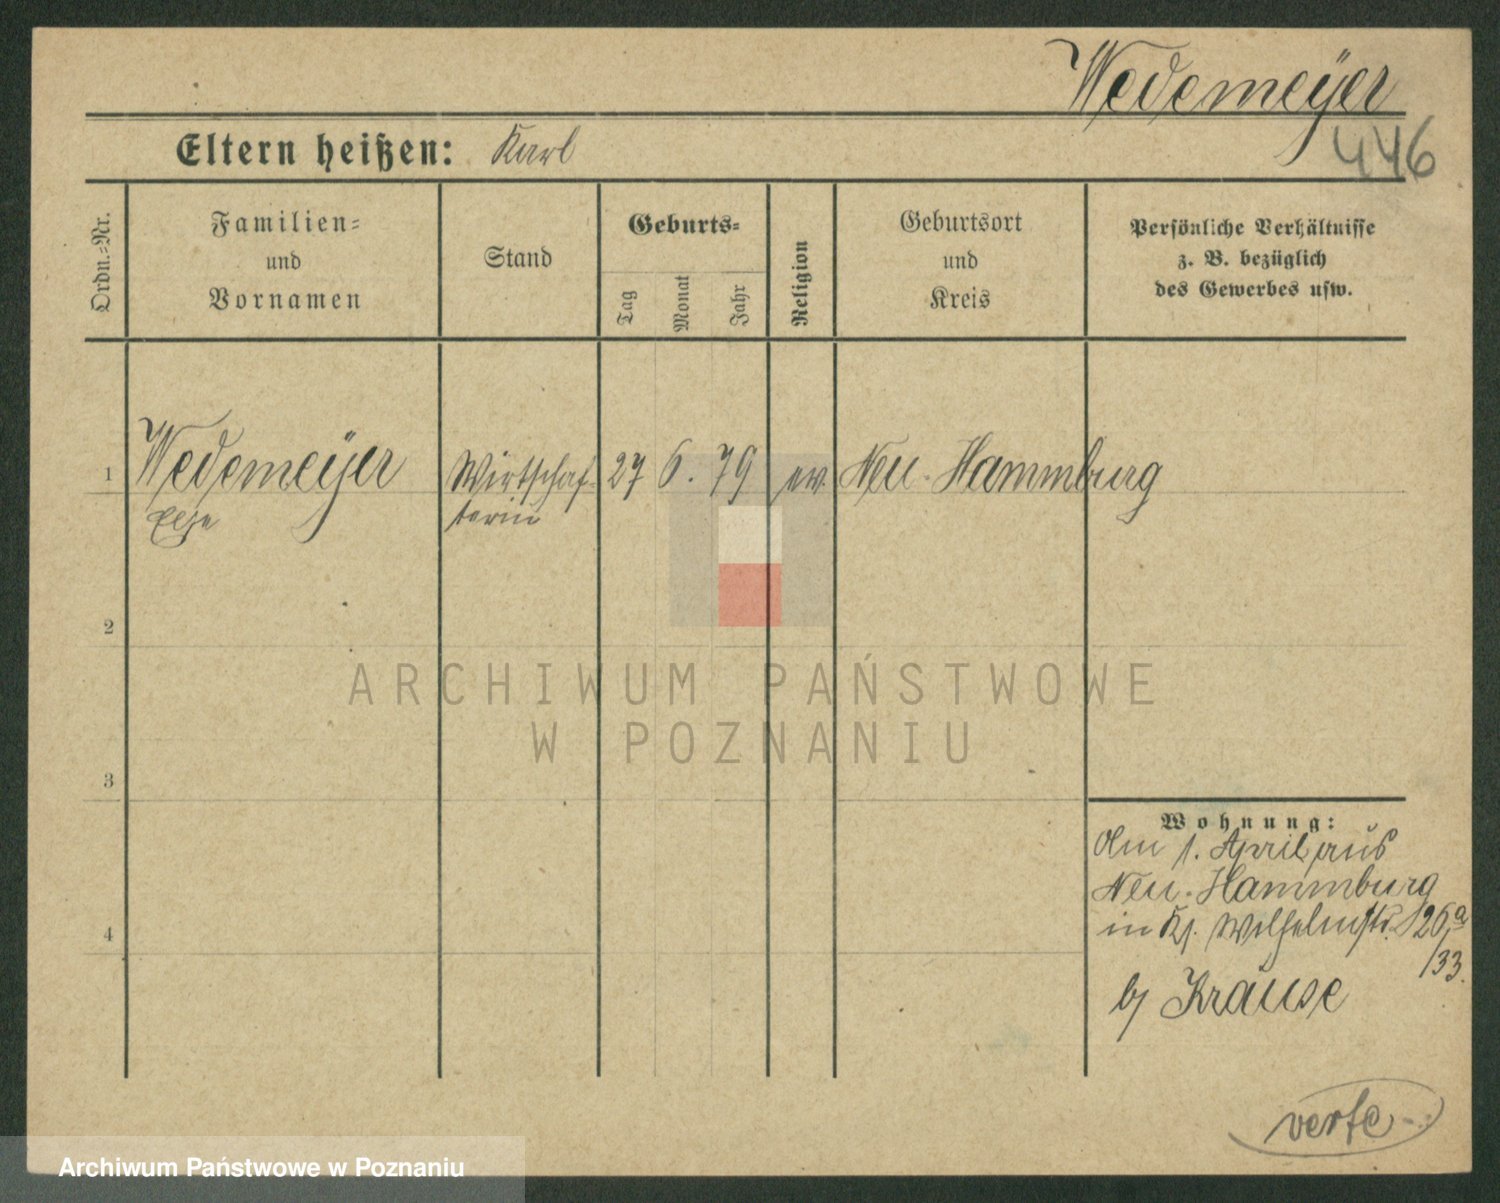 Wedemeÿer
446
Eltern heißen: Karl
Ordn.-Nr.
Familien-
und
Vornamen
Stand
Geburts-
Tag
Monat
Jahr
Religion
Geburtsort
und
Kreis
Persönliche Verhältnisse
z. B. bezüglich
des Gewerbes usw.
1
Wedemeÿer
Else
Wirtschaf-
terin
27 6. 79
ev.
Neu-Hammburg
2
3
4
Wohnung:
Am 1. April aus
Neu-Hammburg
in Wilhelmstr. 26a
/33.
b/ Krause
verte
ARCHIWUM PAŃSTWOWE
W POZNANIU
Archiwum Państwowe w Poznaniu